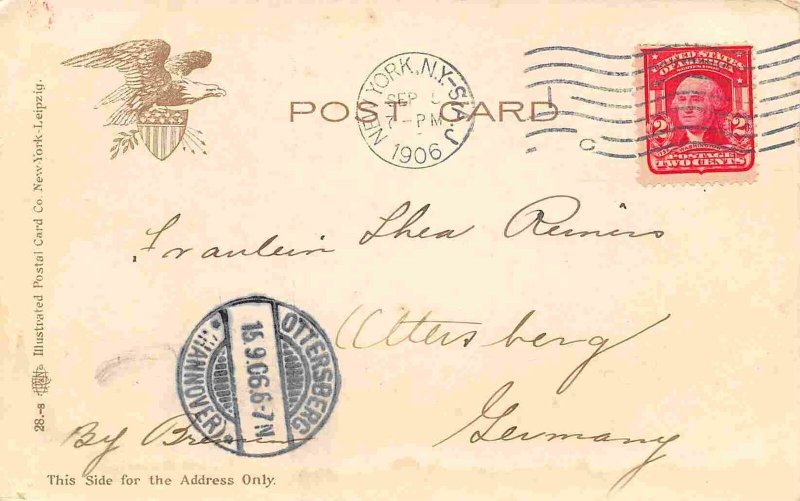 NEW YORK, N.Y-STA.J
SEP 5
7-PM
1906
UNITED STATES
OF AMERICA
2 2
POSTAGE
TWO CENTS
POST CARD
Illustrated Postal Card Co. New York-Leipzig.
28.-8
Fräulein Thea Reiners
Ottersberg
Germany
By Bremen
OTTERSBERG
15.9.06.6-7N
*(HANNOVER)
This Side for the Address Only.